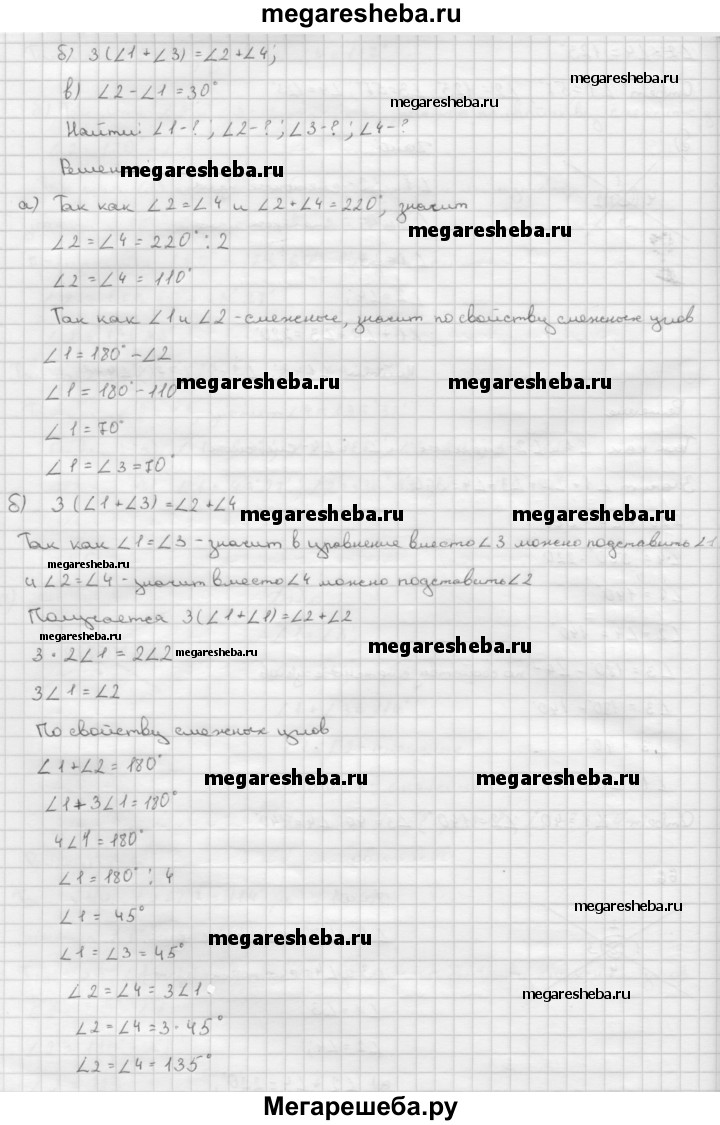 megaresheba.ru
б) 3(∠1+∠3)=∠2+∠4;
megaresheba.ru
в) ∠2-∠1=30°
megaresheba.ru
Найти: ∠1-?; ∠2-?; ∠3-?; ∠4-?
megaresheba.ru
а) Так как ∠2=∠4 и ∠2+∠4=220°, значит
megaresheba.ru
∠2=∠4=220°:2
∠2=∠4=110°
Так как ∠1 и ∠2 - смежные, значит по свойству смежных углов
∠1=180°-∠2
megaresheba.ru megaresheba.ru
∠1=180°-110
∠1=70°
∠1=∠3=70°
б) 3(∠1+∠3)=∠2+∠4
megaresheba.ru megaresheba.ru
Так как ∠1=∠3 - значит в уравнение вместо ∠3 можно подставить ∠1
megaresheba.ru
и ∠2=∠4 - значит вместо ∠4 можно подставить ∠2
Получается 3(∠1+∠1)=∠2+∠2
megaresheba.ru
megaresheba.ru
3·2∠1=2∠2 megaresheba.ru
3∠1=∠2
По свойству смежных углов
∠1+∠2=180°
megaresheba.ru megaresheba.ru
∠1+3∠1=180°
4∠1=180°
∠1=180°:4
megaresheba.ru
∠1=45°
megaresheba.ru
∠1=∠3=45°
∠2=∠4=3∠1
megaresheba.ru
∠2=∠4=3·45°
∠2=∠4=135°
Мегарешеба.ру